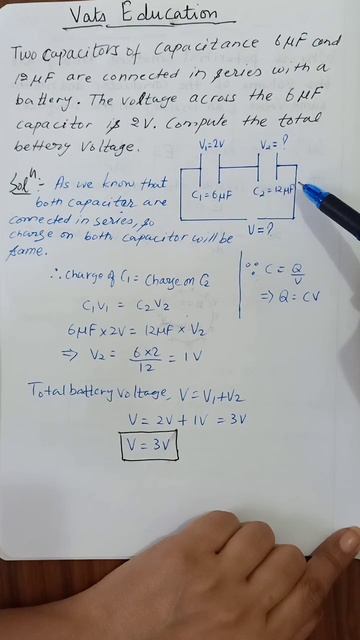 Vats Education
Two capacitors of capacitance 6μF and
12μF are connected in series with a
battery. The voltage across the 6μF
capacitor is 2V. Compute the total
bettery voltage.
V₁=2V V₂=?
C₁=6μF C₂=12μF
V=?
Solⁿ:- As we know that
both capacitor are
connected in series, so
charge on both capacitor will be
same.
∴ charge of C₁ = Charge on C₂
C₁V₁ = C₂V₂
6μF×2V = 12μF × V₂
⇒ V₂ = 6×2/12 = 1V
∵ C = Q/V
⇒ Q = CV
Total battery voltage, V=V₁+V₂
V = 2V + 1V = 3V
V = 3V